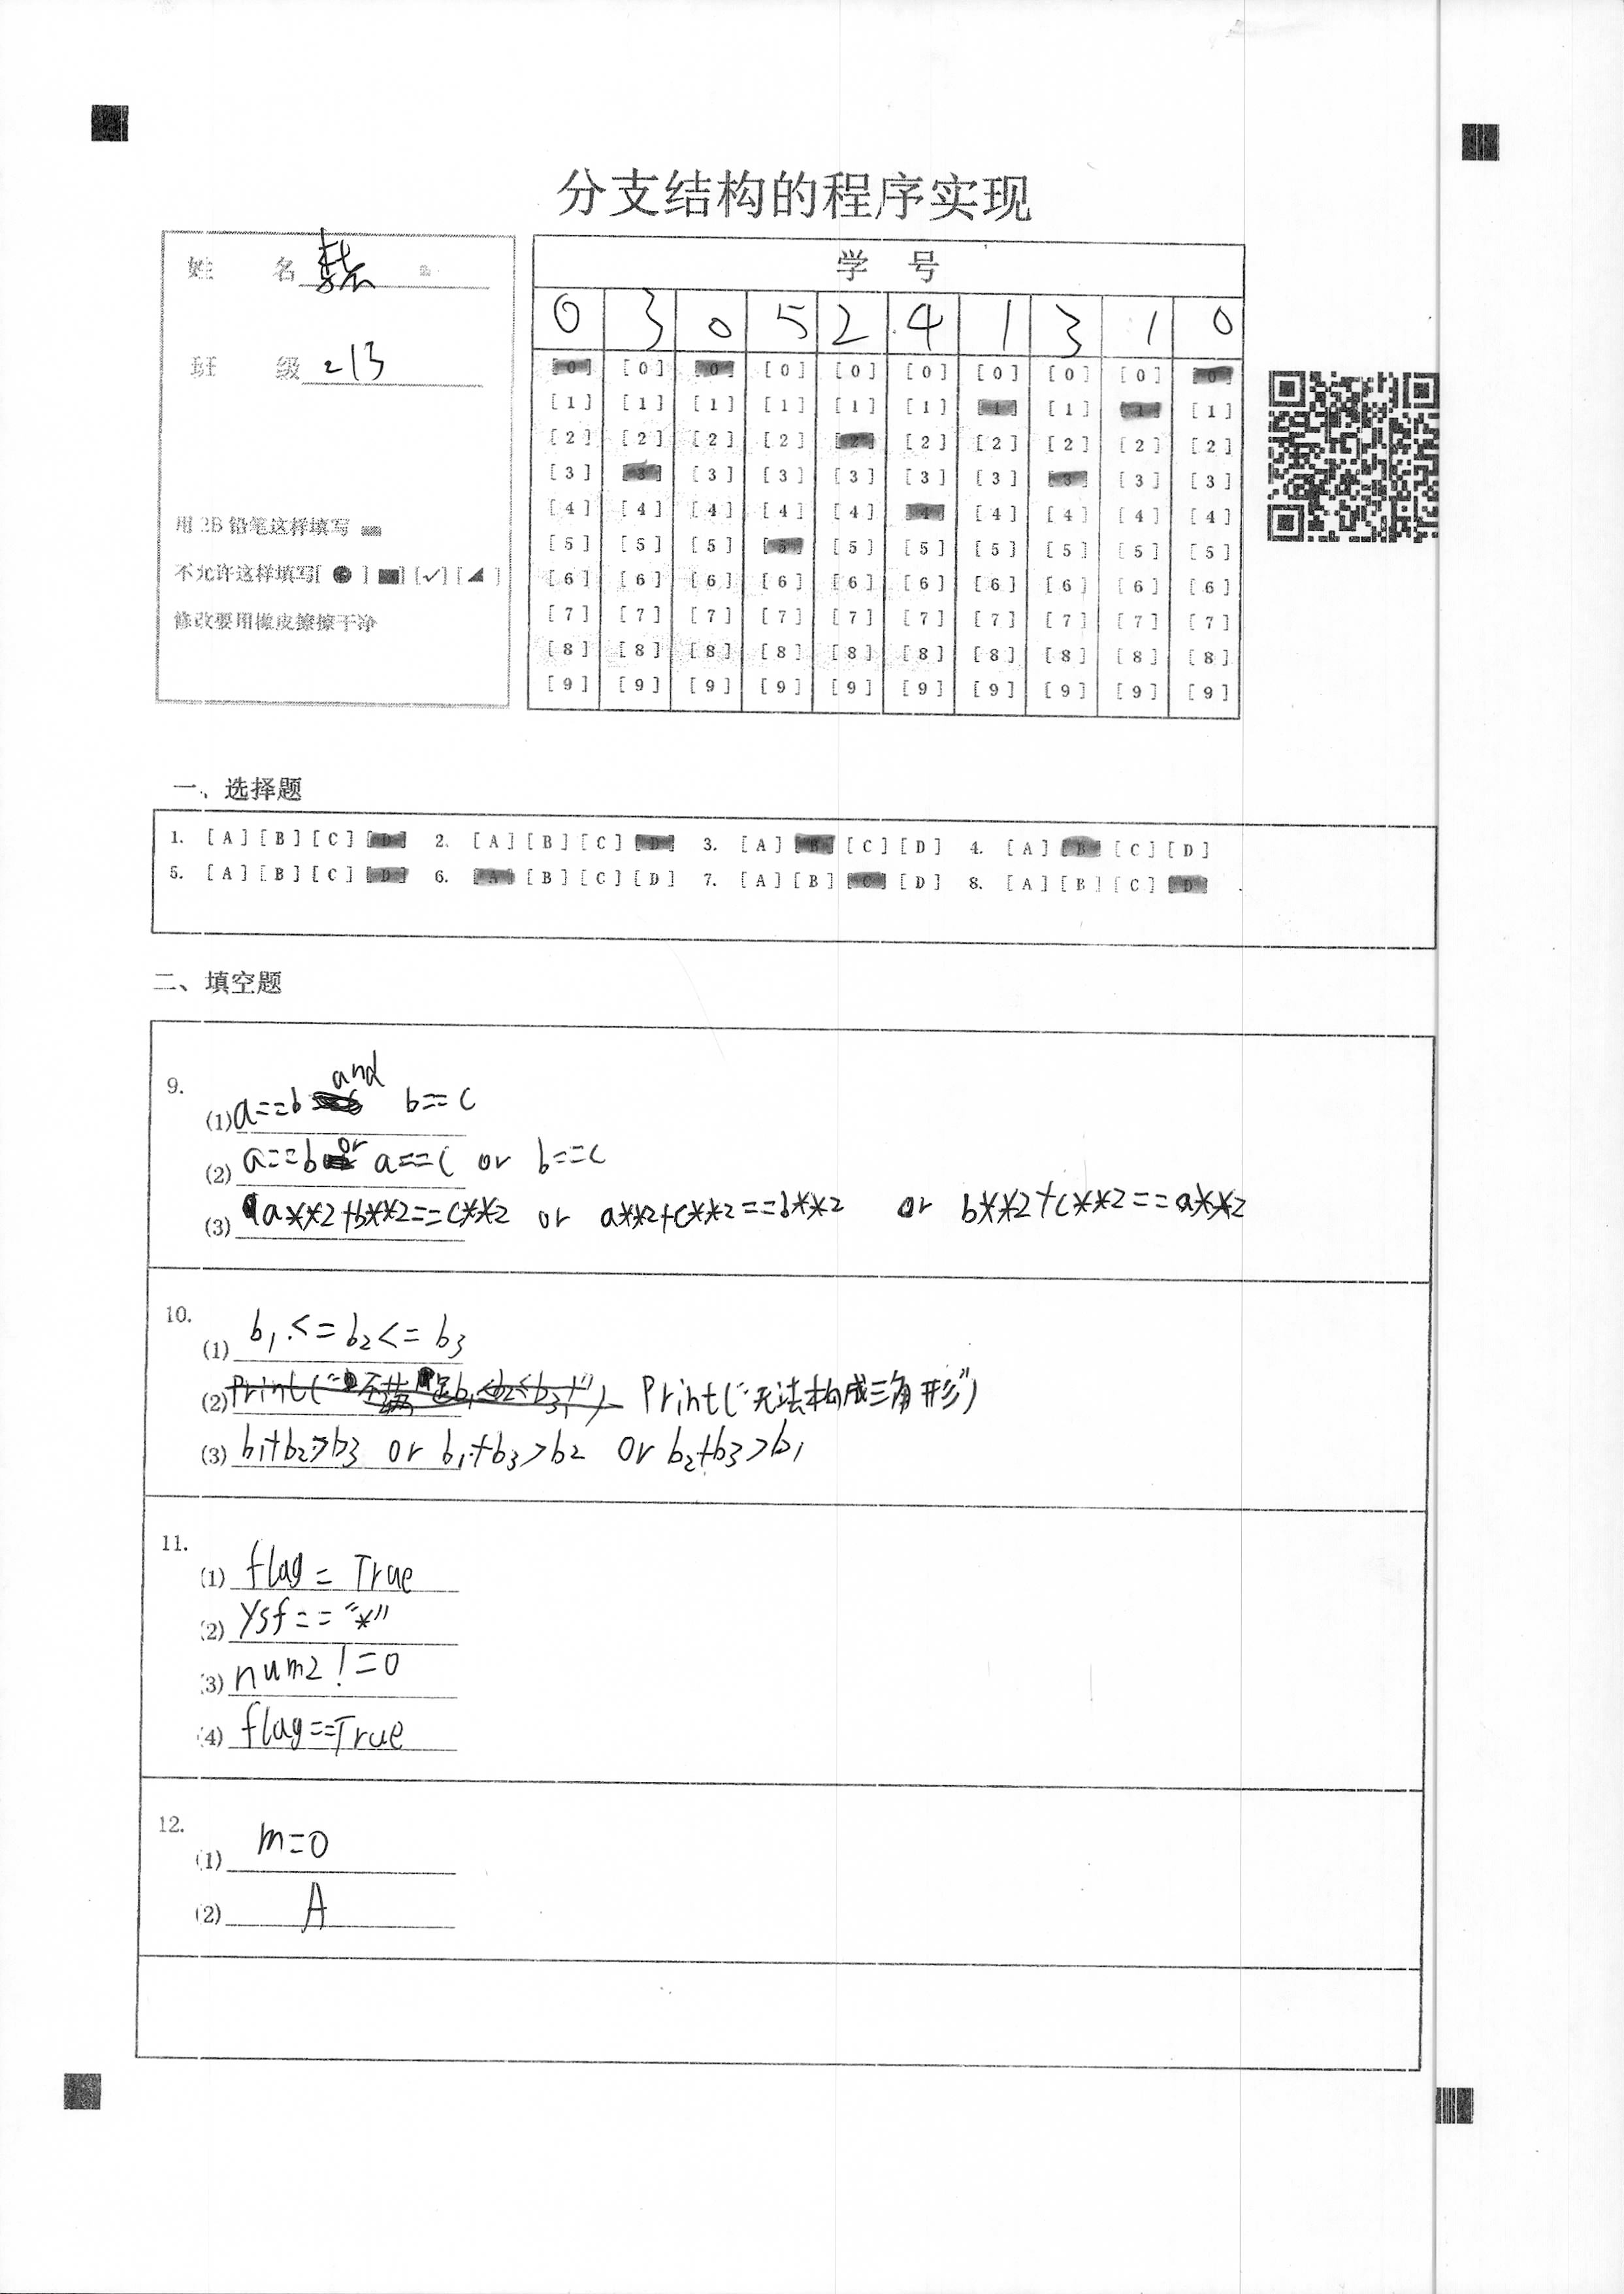 分支结构的程序实现
姓 名
班 级 213
用 2B 铅笔这样填写
不允许这样填写[ ● ] [■] [✓] [◢ ]
修改要用橡皮擦擦干净
学 号
0 3 0 5 2 4 1 3 1 0
[0] [0] [0] [0] [0] [0] [0] [0] [0] [0]
[1] [1] [1] [1] [1] [1] [1] [1] [1] [1]
[2] [2] [2] [2] [2] [2] [2] [2] [2] [2]
[3] [3] [3] [3] [3] [3] [3] [3] [3] [3]
[4] [4] [4] [4] [4] [4] [4] [4] [4] [4]
[5] [5] [5] [5] [5] [5] [5] [5] [5] [5]
[6] [6] [6] [6] [6] [6] [6] [6] [6] [6]
[7] [7] [7] [7] [7] [7] [7] [7] [7] [7]
[8] [8] [8] [8] [8] [8] [8] [8] [8] [8]
[9] [9] [9] [9] [9] [9] [9] [9] [9] [9]
一、选择题
1. [A] [B] [C] [D] 2. [A] [B] [C] [D] 3. [A] [B] [C] [D] 4. [A] [B] [C] [D]
5. [A] [B] [C] [D] 6. [A] [B] [C] [D] 7. [A] [B] [C] [D] 8. [A] [B] [C] [D]
二、填空题
9.
(1) a==b and b==c
(2) a==b or a==c or b==c
(3) a**2+b**2==c**2 or a**2+c**2==b**2 or b**2+c**2==a**2
10.
(1) b1<=b2<=b3
(2) Print("无法构成三角形")
(3) b1+b2>b3 or b1+b3>b2 or b2+b3>b1
11.
(1) flag = True
(2) ysf=="*"
(3) num2!=0
(4) flag==True
12.
(1) m=0
(2) A